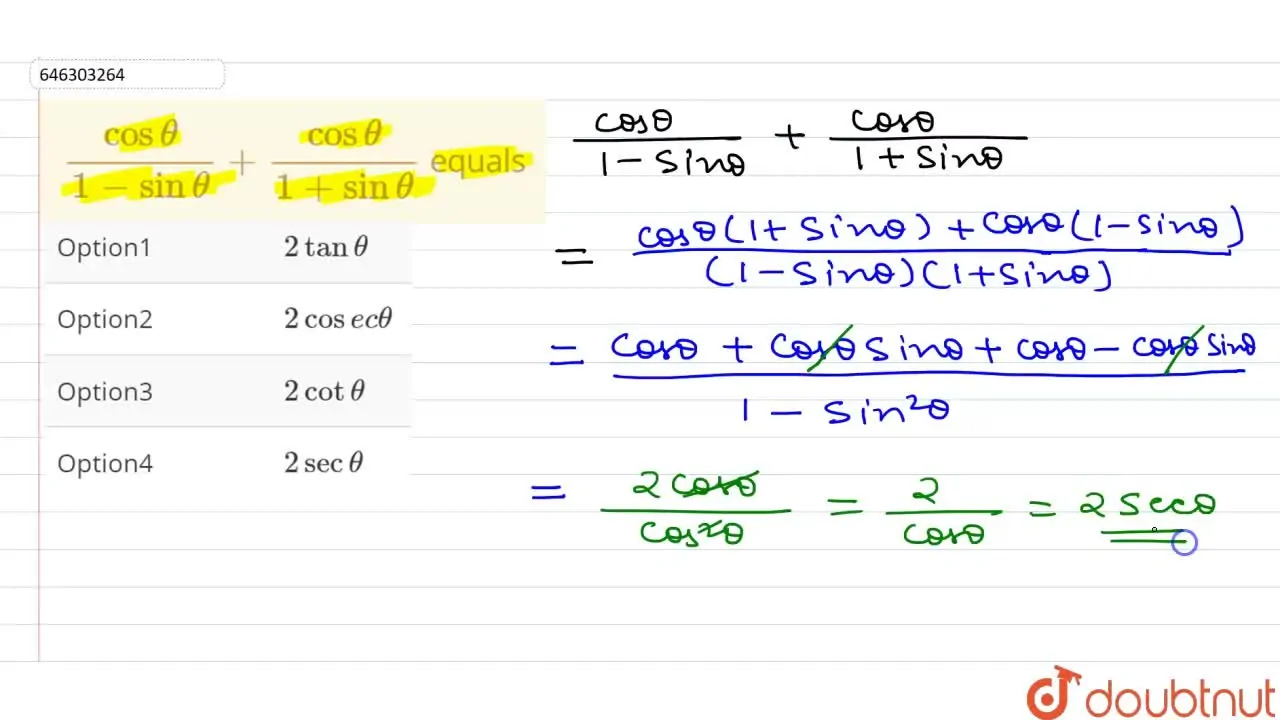 646303264
cosθ/(1 − sinθ) + cosθ/(1 + sinθ) equals
Option1 2 tan θ
Option2 2 cos ecθ
Option3 2 cot θ
Option4 2 sec θ
cosθ/(1 − sinθ) + cosθ/(1 + sinθ)
= (cosθ(1 + sinθ) + cosθ(1 − sinθ))/((1 − sinθ)(1 + sinθ))
= (cosθ + cosθ sinθ + cosθ − cosθ sinθ)/(1 − sin²θ)
= 2cosθ/cos²θ = 2/cosθ = 2 secθ
doubtnut